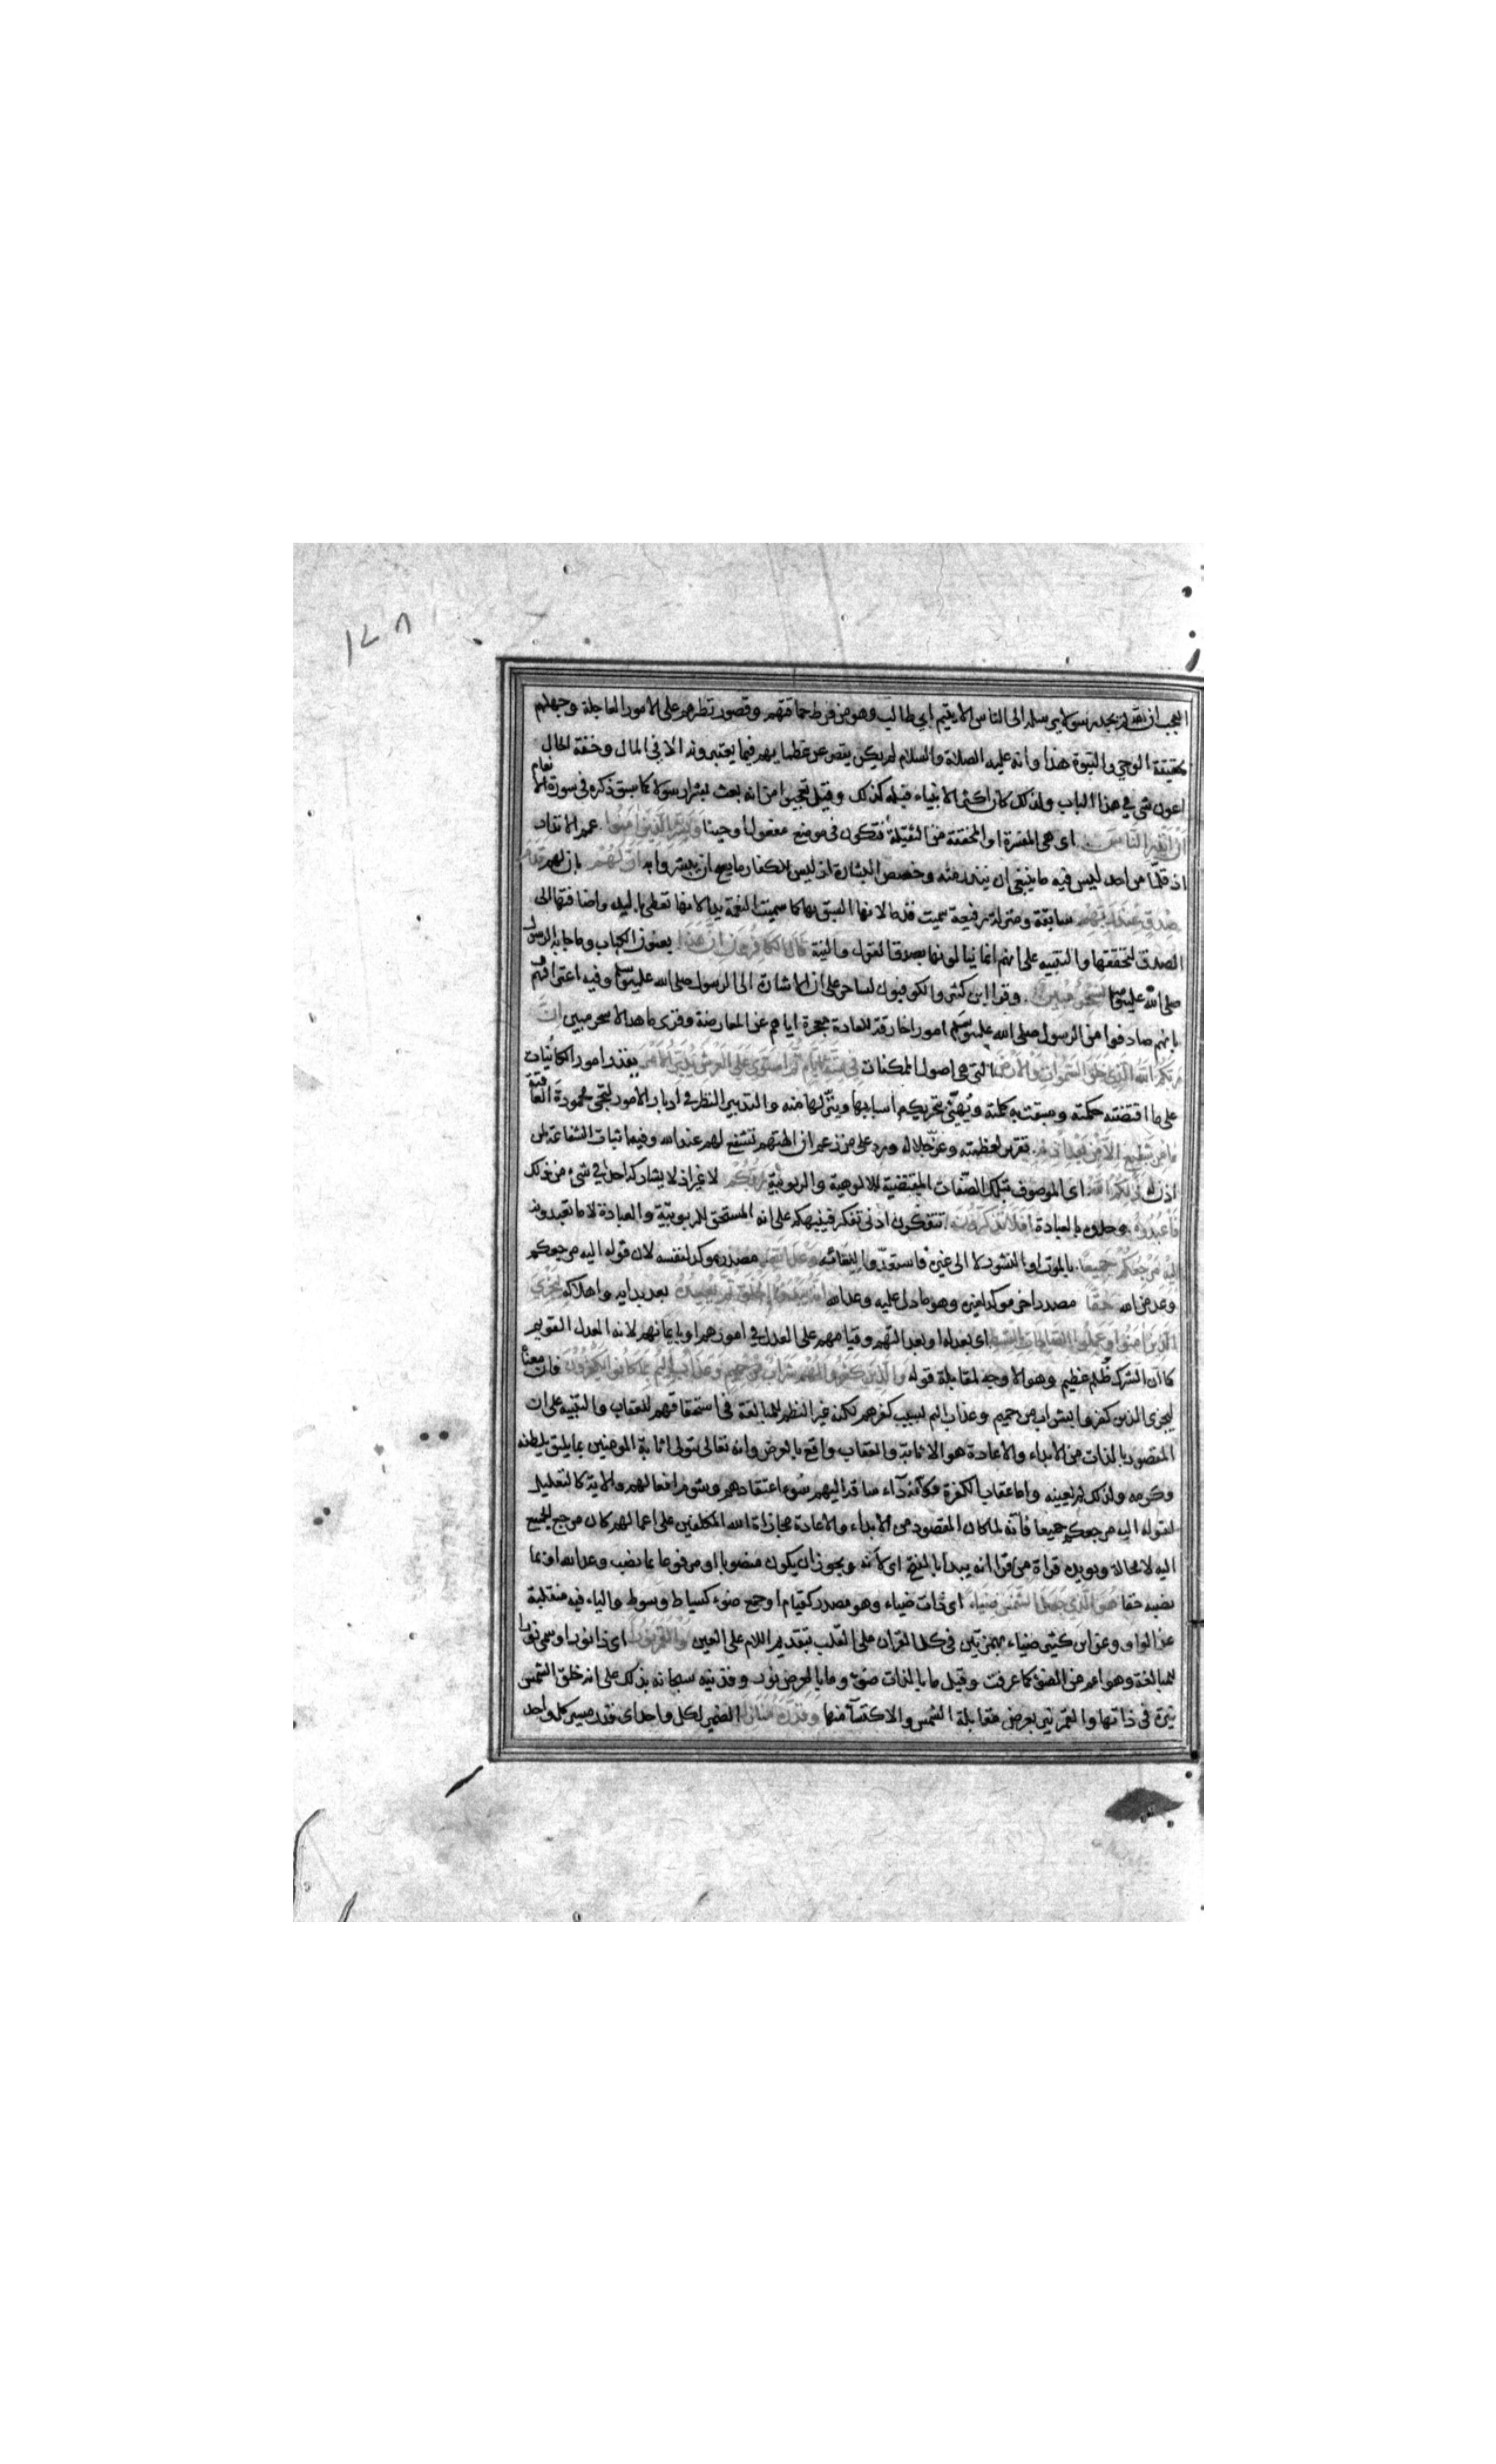 ١٧٨
العجب ان الله لم يجد رسولا يرسله الى الناس الا يتيم ابي طالب وهو من فرط حماقتهم وقصور نظرهم على الامور العاجلة وجهلهم
بحقيقة الوحي والنبوة هذا وانه عليه الصلاة والسلام لم يكن يقصر عن عظمايهم فيما يعتبرونه الا في المال وخفة الحال
اعون شي في هذا الباب ولذلك كان اكثر الانبياء قبله كذلك وقيل تعجبوا من انه بعث بشرا رسولا كما سبق ذكره في سورة الانعام
ان انذر الناس اى هي المفسرة او المخففة من الثقيلة فتكون في موضع مفعول اوحينا وبشر الذين امنوا عمم الانذار
اذ قلما من احد ليس فيه ما ينبغي ان ينذر منه وخصص البشارة اذ ليس للكفار ما يصح ان يبشروا به ان لهم بان لهم قدم
صدق عند ربهم سابقة ومنزلة رفيعة سميت قدما لان السبق بها كما سميت النعمة يدا لانها تعطى باليد واضافتها الى
الصدق لتحققها والتنبيه على انهم انما ينالونها بصدق القول والنية قال الكافرون ان هذا يعنون الكتاب وما جاء به الرسول
صلى الله عليه وسلم لسحر مبين وقرا ابن كثير والكوفيون لساحر على ان الاشارة الى الرسول صلى الله عليه وسلم وفيه اعتراف
بانهم صادفوا من الرسول صلى الله عليه وسلم امورا خارقة للعادة معجزة اياهم عن المعارضة وقرى ما هذا الا سحر مبين ان
ربكم الله الذي خلق السموات والارض التي هي اصول الممكنات في ستة ايام ثم استوى على العرش يدبر الامر يقدر امور الكائنات
على ما اقتضته حكمته وسبقت به كلمته ويهيئ بتحريكه اسبابها وينزلها منه والتدبير النظر في ادبار الامور لتجي محمودة العاقبة
ما من شفيع الا من بعد اذنه تقرير لعظمته وعز جلاله ورد على من زعم ان الهتهم تشفع لهم عند الله وفيه اثبات الشفاعة لمن
اذن له ذلكم الله اى الموصوف بتلك الصفات المقتضية للالوهية والربوبية ربكم لا غير اذ لا يشاركه احد في شيء من ذلك
فاعبدوه وحدوه بالعبادة افلا تذكرون تتفكرون ادنى تفكر فينبهكم على انه المستحق للربوبية والعبادة لا ما تعبدونه
اليه مرجعكم جميعا بالموت او النشور لا الى غيره فاستعدوا للقائه وعد الله مصدر موكد لنفسه لان قوله اليه مرجعكم
وعد من الله حقا مصدر اخر موكد لغيره وهو ما دل عليه وعد الله انه يبدوا الخلق ثم يعيده بعد بدايه واهلاكه ليجزي
الذين امنوا وعملوا الصالحات بالقسط اى بعدله او بعدالتهم وقيامهم على العدل في امورهم او بايمانهم لانه العدل القويم
كما ان الشرك ظلم عظيم وهو الاوجه لمقابلة قوله والذين كفروا لهم شراب من حميم وعذاب اليم بما كانوا يكفرون فان معناه
ليجزي الذين كفروا بشراب من حميم وعذاب اليم بسبب كفرهم لكنه غير النظم للمبالغة في استحقاقهم للعقاب والتنبيه على ان
المقصود بالذات من الابداء والاعادة هو الاثابة والعقاب واقع بالعرض وانه تعالى يتولى اثابة المومنين بما يليق بلطفه
وكرمه ولذلك لم يعينه واما عقاب الكفرة فكانه داء ساقه اليهم سوء اعتقادهم وشوم افعالهم والاية كالتعليل
لقوله اليه مرجعكم جميعا فانه لما كان المقصود من الابداء والاعادة مجازاة الله المكلفين على اعمالهم كان مرجع الجميع
اليه لا محالة ويويده قراة من قرا انه يبدا بالفتح اى لانه ويجوز ان يكون منصوبا او مرفوعا بما نصب وعد الله او بما
نصبه حقا هو الذي جعل الشمس ضياء اى ذات ضياء وهو مصدر كقيام او جمع ضوء كسياط وسوط والياء فيه منقلبة
عن الواو وعن ابن كثير ضئاء بهمزتين في كل القران على القلب بتقديم اللام على العين والقمر نورا اى ذا نور او سمي نورا
للمبالغة وهو اعم من الضوء كما عرفت وقيل ما بالذات ضوء وما بالعرض نور وقد نبه سبحانه بذلك على انه خلق الشمس
نيرة في ذاتها والقمر نيرا بعرض مقابلة الشمس والاكتساب منها وقدره منازل الضمير لكل واحد اى قدر مسير كل واحد